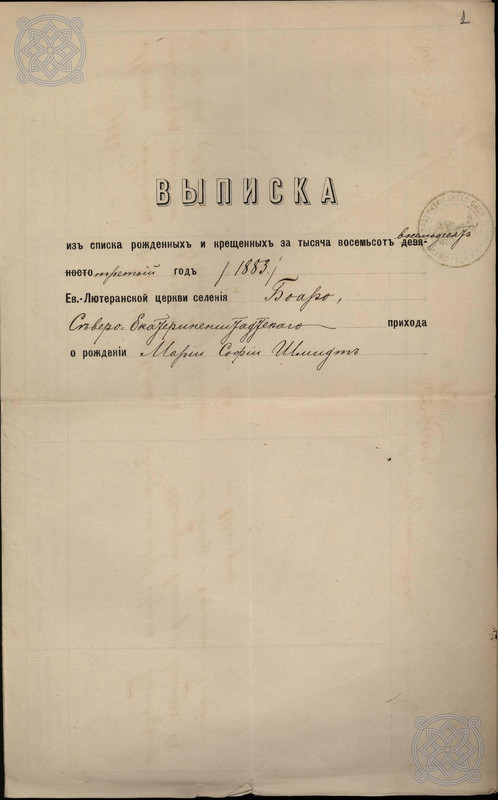 1
ВЫПИСКА
восемьдесятъ
изъ списка рожденныхъ и крещенныхъ за тысяча восемьсотъ девя-
носто третій годъ /1883/
Ев.-Лютеранской церкви селенія Боаро,
Сѣверо-Екатериненштадтскаго прихода
о рожденіи Маріи Софіи Шмидтъ